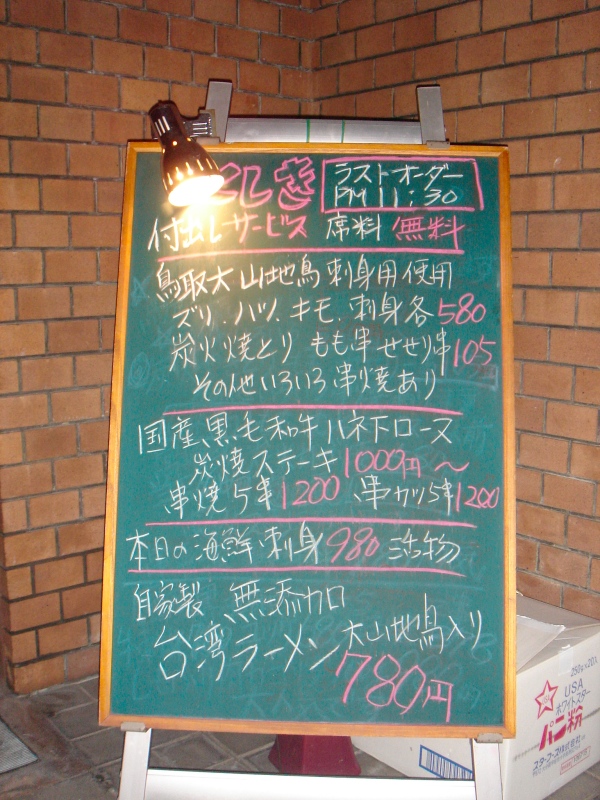 としき
ラストオーダー
PM 11:30
付出しサービス 席料 無料
鳥取大山地鳥刺身用使用
ズリ、ハツ、キモ、刺身各580
炭火焼とり もも串せせり串105
その他いろいろ串焼あり
国産黒毛和牛ハネ下ロース
炭焼ステーキ1000円~
串焼5串1200 串カツ5串1200
本日の海鮮刺身980 活物
自家製 無添加
台湾ラーメン 大山地鳥入り
780円
250g×20入
USA
ホワイトスター
パン粉
スターフーズ株式会社